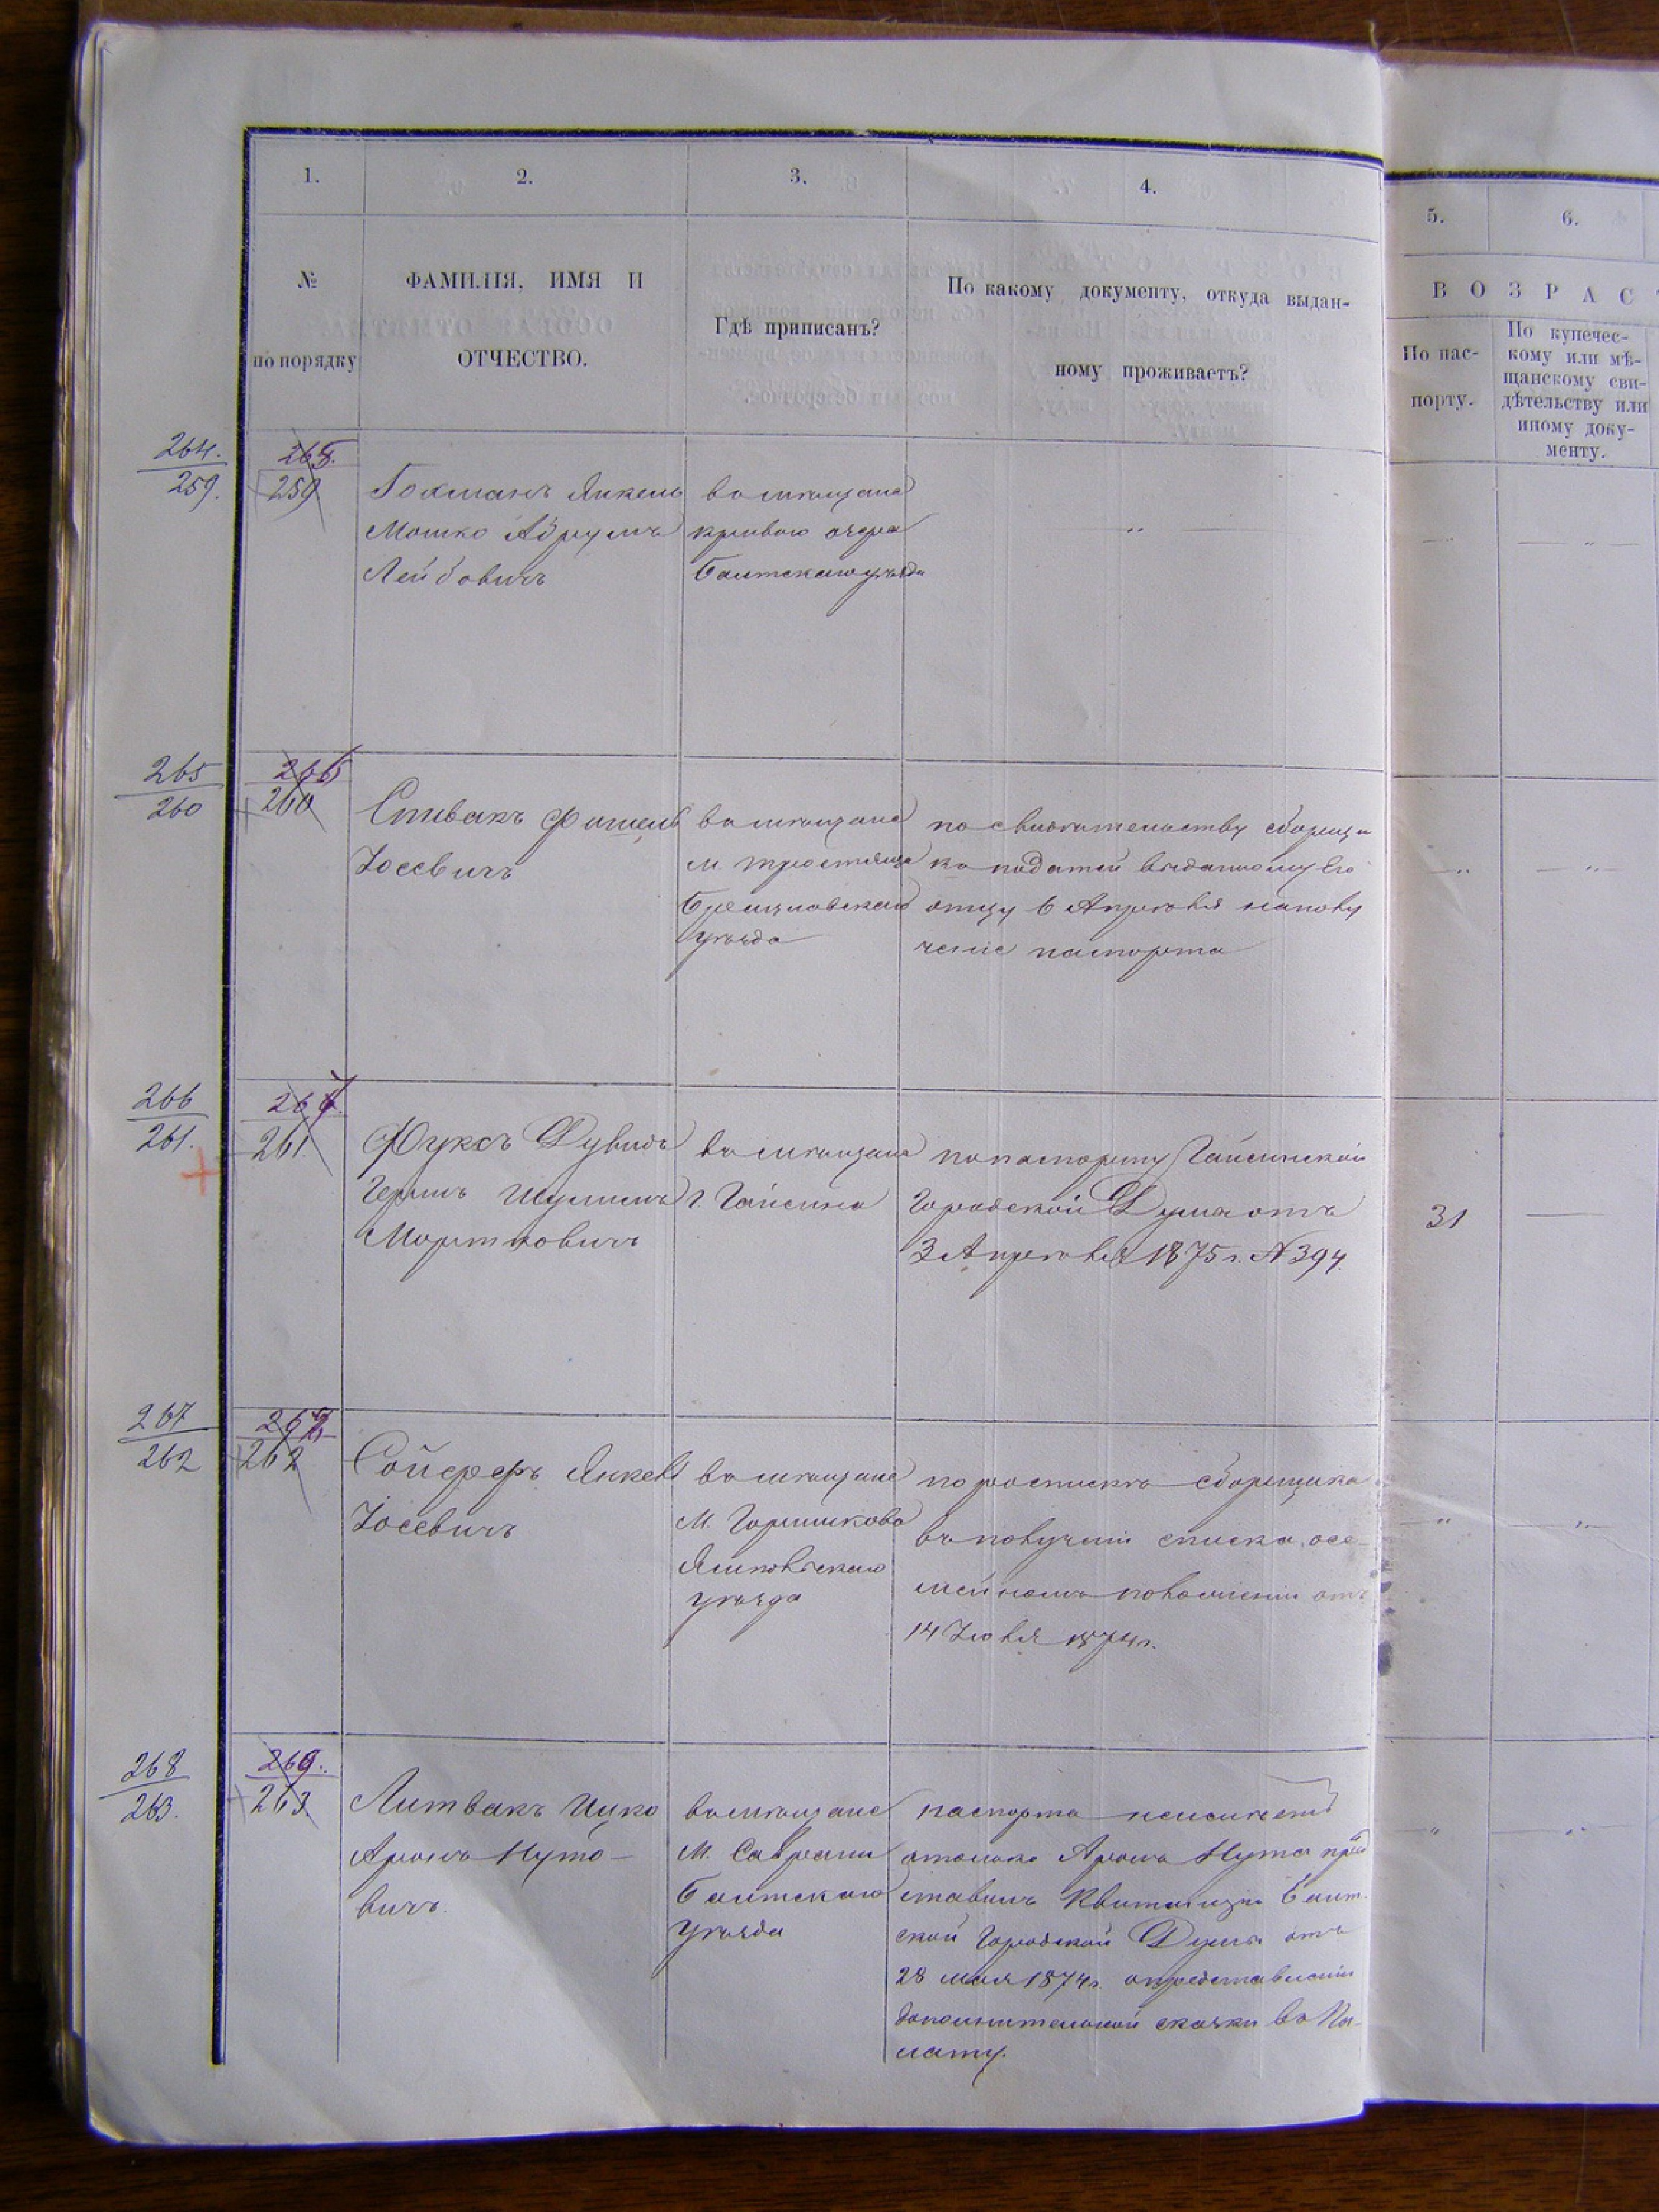 1.
2.
3.
4.
5.
6.
№
по порядку
ФАМИЛІЯ, ИМЯ И
ОТЧЕСТВО.
Гдѣ приписанъ?
По какому документу, откуда выдан-
ному проживаетъ?
ВОЗРАСТ
По пас-
порту.
По купечес-
кому или мѣ-
щанскому сви-
дѣтельству или
иному доку-
менту.
264.
259.
259
Гохманъ Янкель
Мошко Абрумъ
Лейбовичъ
въ мѣщане
кривого озера
Балтскаго уѣзда
265
260
260
Спивакъ Фишель
Іосевичъ
въ мѣщане
м. тростянца
Брацлавскаго
уѣзда
по свидѣтельству сборщи
ка податей выданному Его
отцу 6 Апрѣля на полу
ченіе паспорта
266
261.
261
Фуксъ Дувидъ
Гершъ Шулимъ
Мортковичъ
въ мѣщане
г. Гайсина
по паспорту Гайсинской
Городской Думы отъ
3 Апрѣля 1875 г. № 394
31
267
262
262
Сойферъ Янкель
Іосевичъ
въ мѣщане
М. Горишкова
Ямпольскаго
уѣзда
по роспискѣ сборщика
въ полученіи списка о се-
мейномъ положеніи отъ
14 Іюля 1874 г.
268
263.
269.
263
Литвакъ Ицко
Аронъ Нуто-
вичъ
въ мѣщане
М. Саврани
Балтскаго
уѣзда
паспорта неимѣетъ
Аронъ Нута пред
ставилъ Квитанцію Балт-
ской Городской Думы отъ
28 мая 1874 г. о представленіи
дополнительной сказки въ Па-
лату.